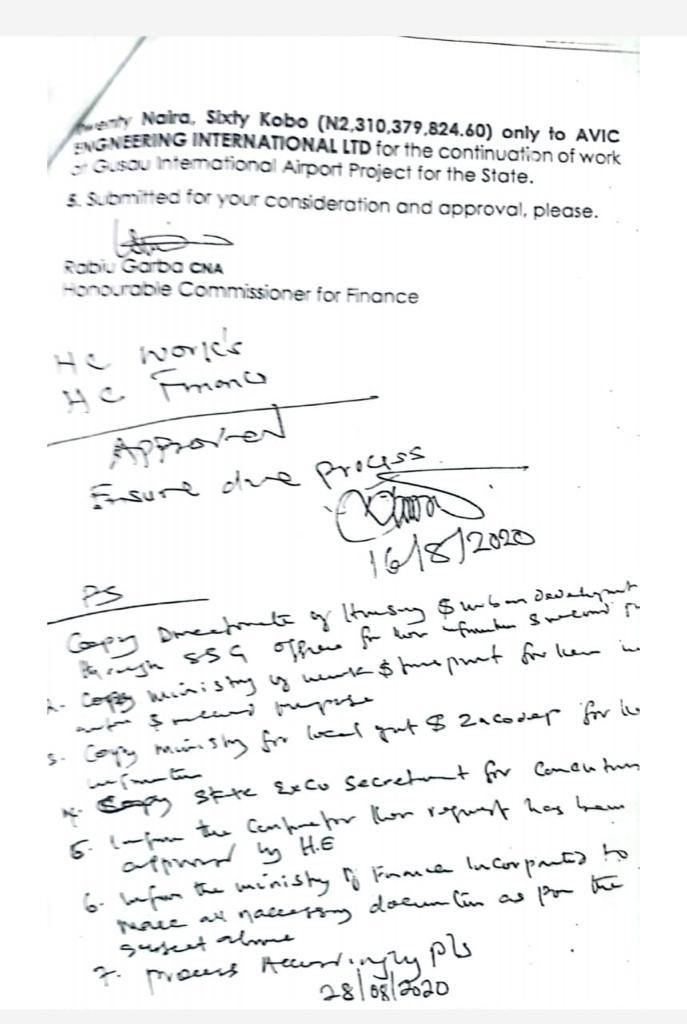 Twenty Naira, Sixty Kobo (N2,310,379,824.60) only to AVIC
ENGNEERING INTERNATIONAL LTD for the continuation of work
at Gusau International Airport Project for the State.
5. Submitted for your consideration and approval, please.
Rabiu Garba CNA
Honourable Commissioner for Finance
HC Work's
HC Finance
Approved
Ensure due process
16/8/2020
PS
Copy Directorate of Housing $ urban Development
through SSG office for
Copy ministry of work $ transport for
$ record purpose
3. Copy ministry for local govt $ Zacodep for
4. Copy State ExCo Secretariat for
5. Inform the Contractor that request has been
approved by H.E
6. Inform the ministry of Finance Incorporated to
make all necessary as per the
subject above
7. process Accordingly pls
28/08/2020